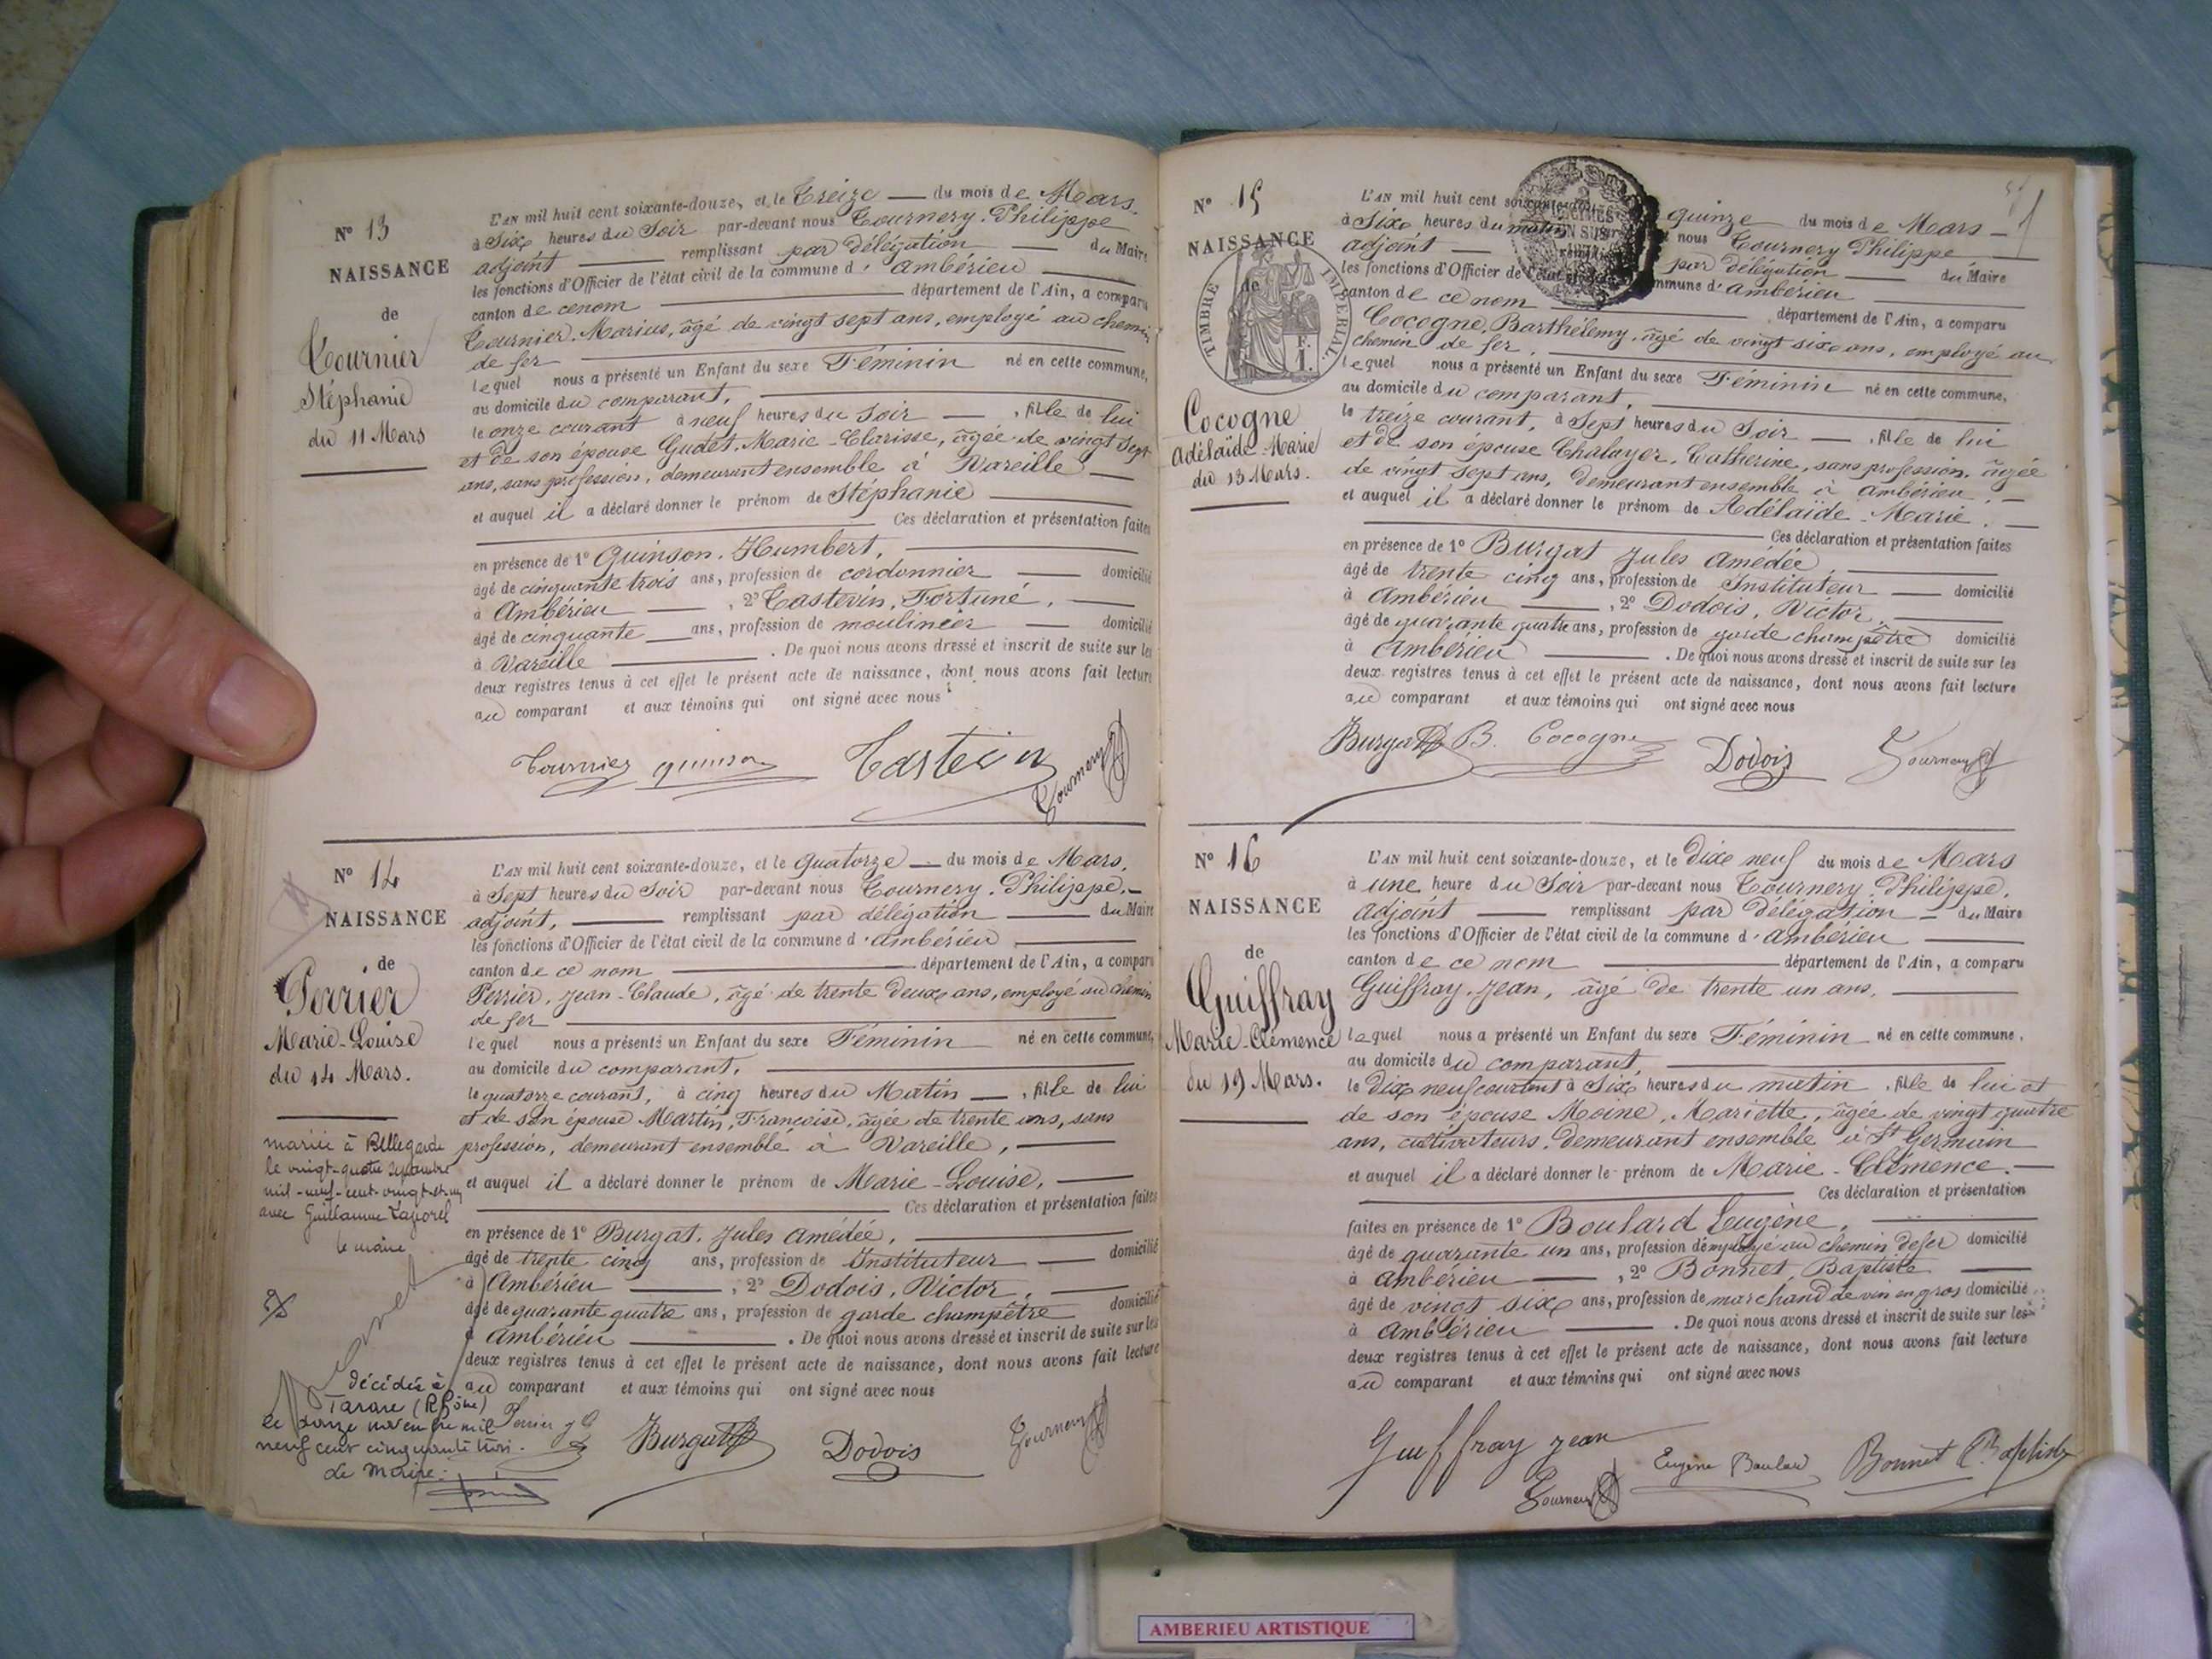 N° 13
NAISSANCE
de
Tournier
Stéphanie
du 11 Mars
L'AN mil huit cent soixante-douze, et le Treize — du mois de Mars.
à Six heures du Soir par-devant nous Tournery. Philippe
adjoint — remplissant par délégation — du Maire
les fonctions d'Officier de l'état civil de la commune d'ambérieu
canton de ce nom — département de l'Ain, a comparu
Tournier. Marius, âgé de vingt sept ans, employé au chemin
de fer
lequel nous a présenté un Enfant du sexe Féminin né en cette commune,
au domicile du comparant,
le onze courant à neuf heures du Soir — , fille de lui
et de son épouse Gudet. Marie-Clarisse, âgée de vingt sept
ans, sans profession, demeurant ensemble à Vareille
et auquel il a déclaré donner le prénom de Stéphanie
Ces déclaration et présentation faites
en présence de 1° Quinson. Humbert,
âgé de cinquante trois ans, profession de cordonnier — domicilié
à Ambérieu — , 2° Castevin, Fortuné,
âgé de cinquante ans, profession de moulinier — domicilié
à Vareille — . De quoi nous avons dressé et inscrit de suite sur les
deux registres tenus à cet effet le présent acte de naissance, dont nous avons fait lecture
au comparant et aux témoins qui ont signé avec nous
Tournier quinson Castevin Tournery
N° 14
NAISSANCE
de
Perrier
Marie-Louise
du 14 Mars.
mariée à Bellegarde
le vingt-quatre septembre
mil-neuf-cent-vingt-et-un
avec Guillaume
le maire
décédée à
Tarare (Rhône)
le douze novembre mil
neuf cent cinquante trois.
Le Maire:
L'AN mil huit cent soixante-douze, et le quatorze — du mois de Mars,
à Sept heures du Soir par-devant nous Tournery. Philippe,
adjoint, — remplissant par délégation — du Maire
les fonctions d'Officier de l'état civil de la commune d'ambérieu
canton de ce nom — département de l'Ain, a comparu
Perrier. Jean-Claude, âgé de trente deux ans, employé au chemin
de fer
lequel nous a présenté un Enfant du sexe Féminin né en cette commune,
au domicile du comparant,
le quatorze courant, à cinq heures du Matin — , fille de lui
et de son épouse Martin, Françoise, âgée de trente ans, sans
profession, demeurant ensemble à Vareille,
et auquel il a déclaré donner le prénom de Marie-Louise,
Ces déclaration et présentation faites
en présence de 1° Burgat. Jules Amédée,
âgé de trente cinq ans, profession de Instituteur — domicilié
à Ambérieu — , 2° Dodois, Victor,
âgé de quarante quatre ans, profession de garde champêtre domicilié
à Ambérieu — . De quoi nous avons dressé et inscrit de suite sur les
deux registres tenus à cet effet le présent acte de naissance, dont nous avons fait lecture
au comparant et aux témoins qui ont signé avec nous
Perrier J C Burgat Dodois Tournery
N° 15
NAISSANCE
de
TIMBRE IMPERIAL
1 F.
Cocogne
Adélaïde-Marie
du 13 Mars.
L'AN mil huit cent soixante-douze quinze du mois de Mars
à Six heures du matin nous Tournery Philippe
adjoint — par délégation — du Maire
les fonctions d'Officier de l'état commune d'ambérieu
canton de ce nom — département de l'Ain, a comparu
Cocogne, Barthélemy, âgé de vingt six ans, employé au
chemin de fer,
lequel nous a présenté un Enfant du sexe Féminin né en cette commune,
au domicile du comparant,
le treize courant, à Sept heures du Soir — , fille de lui
et de son épouse Chalayer, Catherine, sans profession, âgée
de vingt sept ans, demeurant ensemble à ambérieu,
et auquel il a déclaré donner le prénom de Adélaïde-Marie.
Ces déclaration et présentation faites
en présence de 1° Burgat Jules Amédée,
âgé de trente cinq ans, profession de Instituteur — domicilié
à Ambérieu — , 2° Dodois, Victor,
âgé de quarante quatre ans, profession de garde champêtre domicilié
à Ambérieu — . De quoi nous avons dressé et inscrit de suite sur les
deux registres tenus à cet effet le présent acte de naissance, dont nous avons fait lecture
au comparant et aux témoins qui ont signé avec nous
Burgat B. Cocogne Dodois Tournery
N° 16
NAISSANCE
de
Guiffray
Marie-Clémence
du 19 Mars.
L'AN mil huit cent soixante-douze, et le Dixe neuf du mois de Mars
à une heure du Soir par-devant nous Tournery. Philippe,
adjoint — remplissant par délégation — du Maire
les fonctions d'Officier de l'état civil de la commune d'ambérieu
canton de ce nom — département de l'Ain, a comparu
Guiffray. Jean, âgé de trente un ans,
lequel nous a présenté un Enfant du sexe Féminin né en cette commune,
au domicile du comparant
le Dixe neuf courant à Six heures du matin , fille de lui et
de son épouse Moine, Mariette, âgée de vingt quatre
ans, cultivateurs, demeurant ensemble à St Germain
et auquel il a déclaré donner le prénom de Marie-Clémence.
Ces déclaration et présentation
faites en présence de 1° Boulard Eugène,
âgé de quarante un ans, profession d'employé au chemin de fer domicilié
à ambérieu — , 2° Bonnet, Baptiste
âgé de vingt six ans, profession de marchand de vin en gros domicilié
à Ambérieu — . De quoi nous avons dressé et inscrit de suite sur les
deux registres tenus à cet effet le présent acte de naissance, dont nous avons fait lecture
au comparant et aux témoins qui ont signé avec nous
Guiffray Jean Eugène Boulard Bonnet Baptiste
Tournery
AMBERIEU ARTISTIQUE